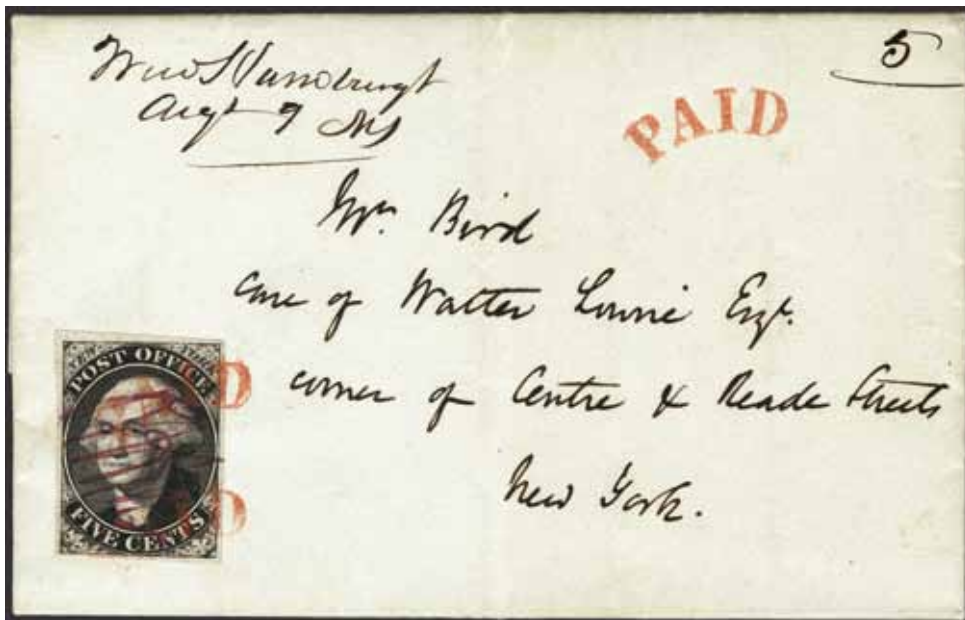 5
Augt 9
PAID
Mr. Bird
care of Walter Lowrie Esqr.
corner of Centre & Reade Streets
New York.
POST OFFICE
FIVE CENTS